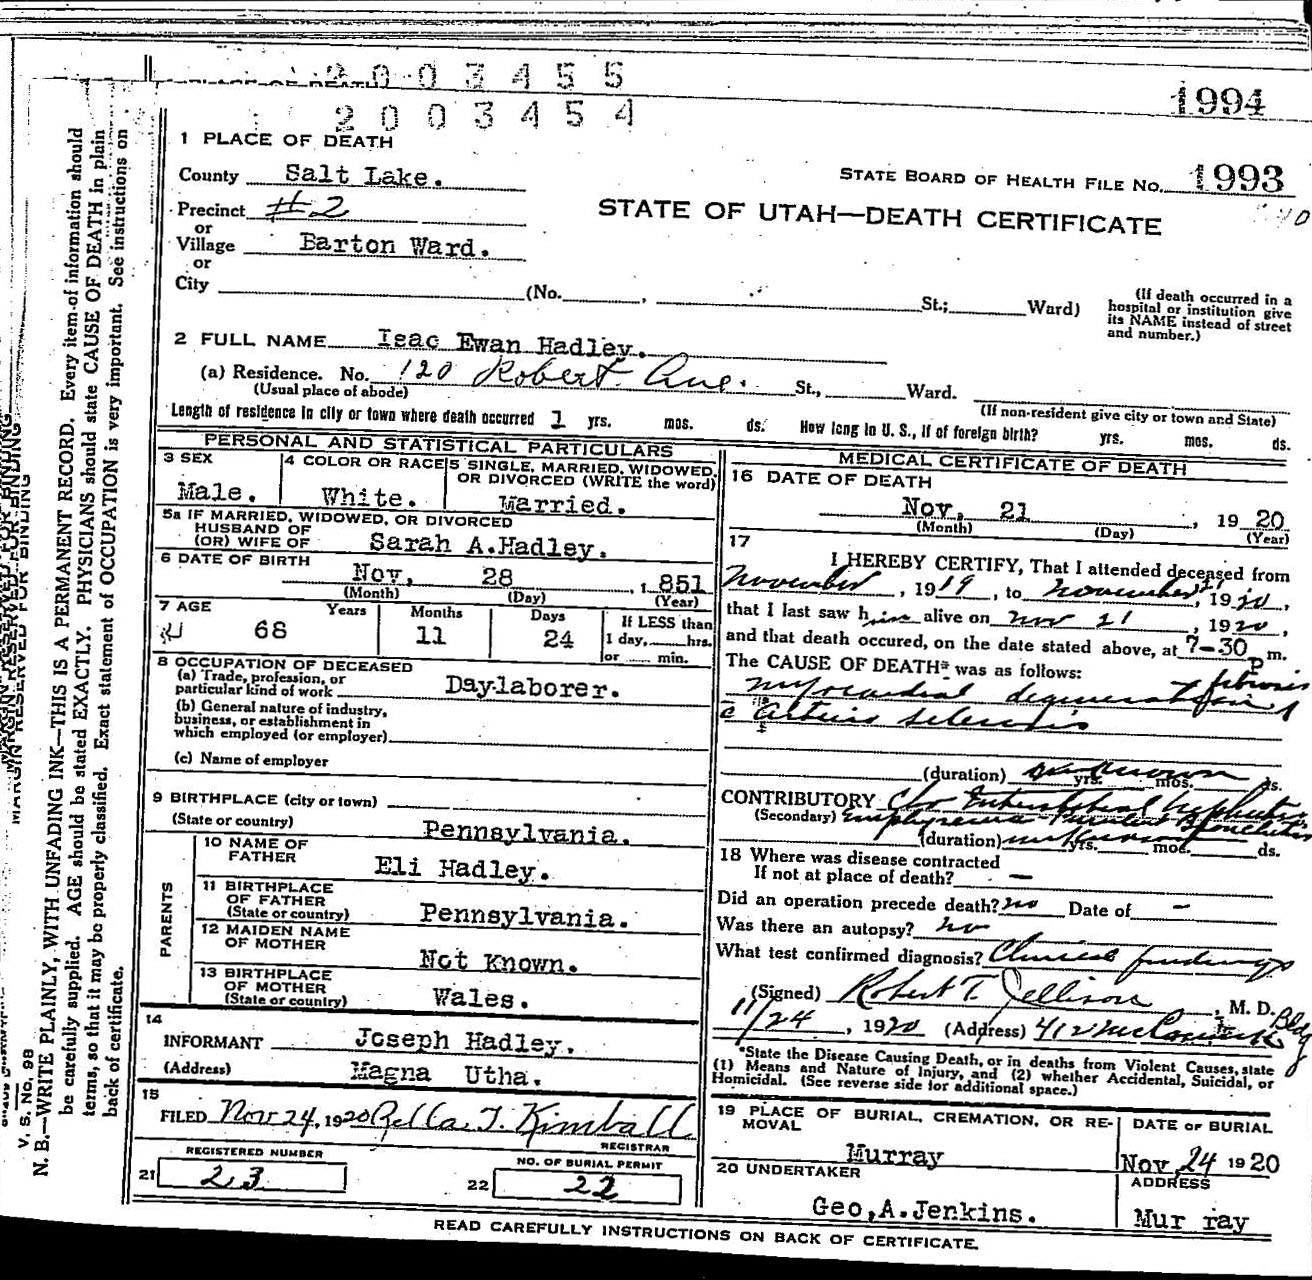 2003455
1994
2003454
1 PLACE OF DEATH
County Salt Lake.
STATE BOARD OF HEALTH FILE NO. 1993
Precinct #2
STATE OF UTAH—DEATH CERTIFICATE
or
Village Barton Ward.
or
City (No. , St.; Ward)
(If death occurred in a hospital or institution give its NAME instead of street and number.)
2 FULL NAME Isac Ewan Hadley.
(a) Residence. No. 120 Robert Ave. St., Ward.
(Usual place of abode)
(If non-resident give city or town and State)
Length of residence in city or town where death occurred 1 yrs. mos. ds. How long in U. S., if of foreign birth? yrs. mos. ds.
PERSONAL AND STATISTICAL PARTICULARS
3 SEX
Male.
4 COLOR OR RACE
White.
5 SINGLE, MARRIED, WIDOWED, OR DIVORCED (WRITE the word)
Married.
5a IF MARRIED, WIDOWED, OR DIVORCED
HUSBAND OF
(OR) WIFE OF Sarah A.Hadley.
6 DATE OF BIRTH
Nov, 28 , 1851
(Month) (Day) (Year)
7 AGE Years Months Days If LESS than
68 11 24 1 day, hrs.
or min.
8 OCCUPATION OF DECEASED
(a) Trade, profession, or
particular kind of work Day-laborer.
(b) General nature of industry,
business, or establishment in
which employed (or employer)
(c) Name of employer
9 BIRTHPLACE (city or town)
(State or country) Pennsylvania.
PARENTS
10 NAME OF
FATHER Eli Hadley.
11 BIRTHPLACE
OF FATHER
(State or country) Pennsylvania.
12 MAIDEN NAME
OF MOTHER Not Known.
13 BIRTHPLACE
OF MOTHER
(State or country) Wales.
14
INFORMANT Joseph Hadley.
(Address) Magna Utha.
15
FILED Nov 24, 1920 Rella T. Kimball
REGISTRAR
REGISTERED NUMBER
21 23
NO. OF BURIAL PERMIT
22 22
MEDICAL CERTIFICATE OF DEATH
16 DATE OF DEATH
Nov, 21 , 1920
(Month) (Day) (Year)
17
I HEREBY CERTIFY, That I attended deceased from
November , 1919 , to November 21, 1920,
that I last saw him alive on Nov 21 , 1920,
and that death occured, on the date stated above, at 7-30 P m.
The CAUSE OF DEATH* was as follows:
myocardial degeneration + fibrosis
c Arterio sclerosis
(duration) unknown yrs. mos. ds.
CONTRIBUTORY Chr Interstitial Nephritis
(Secondary) Emphysema Bronchitis
(duration) unknown yrs. mos. ds.
18 Where was disease contracted
If not at place of death? —
Did an operation precede death? no Date of —
Was there an autopsy? no
What test confirmed diagnosis? Clinical findings
(Signed) Robert T. Jellison , M. D.
11/24 , 1920 (Address) 412 McCornick Bldg
*State the Disease Causing Death, or in deaths from Violent Causes, state
(1) Means and Nature of Injury, and (2) whether Accidental, Suicidal, or
Homicidal. (See reverse side for additional space.)
19 PLACE OF BURIAL, CREMATION, OR REMOVAL
Murray
DATE OF BURIAL
Nov 24 1920
20 UNDERTAKER
Geo,A.Jenkins.
ADDRESS
Mur ray
READ CAREFULLY INSTRUCTIONS ON BACK OF CERTIFICATE.
MARGIN RESERVED FOR BINDING
V. S. NO. 98
N. B.—WRITE PLAINLY, WITH UNFADING INK—THIS IS A PERMANENT RECORD. Every item of information should
be carefully supplied. AGE should be stated EXACTLY. PHYSICIANS should state CAUSE OF DEATH in plain
terms, so that it may be properly classified. Exact statement of OCCUPATION is very important. See instructions on
back of certificate.